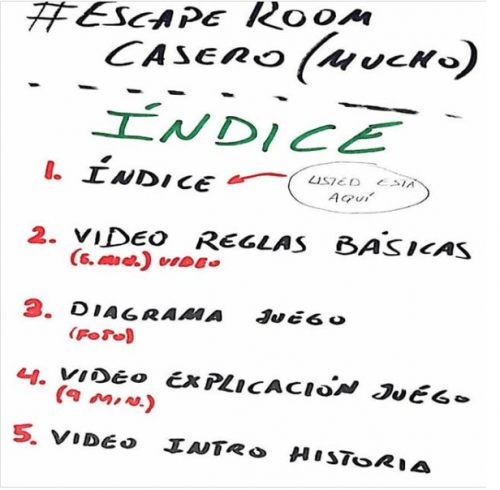 #ESCAPE ROOM
CASERO (MUCHO)
ÍNDICE
1. ÍNDICE
USTED ESTÁ
AQUÍ
2. VIDEO REGLAS BÁSICAS
(5. MIN.) VIDEO
3. DIAGRAMA JUEGO
(FOTO)
4. VIDEO EXPLICACIÓN JUÉGO
(9 MIN.)
5. VIDEO INTRO HISTORIA